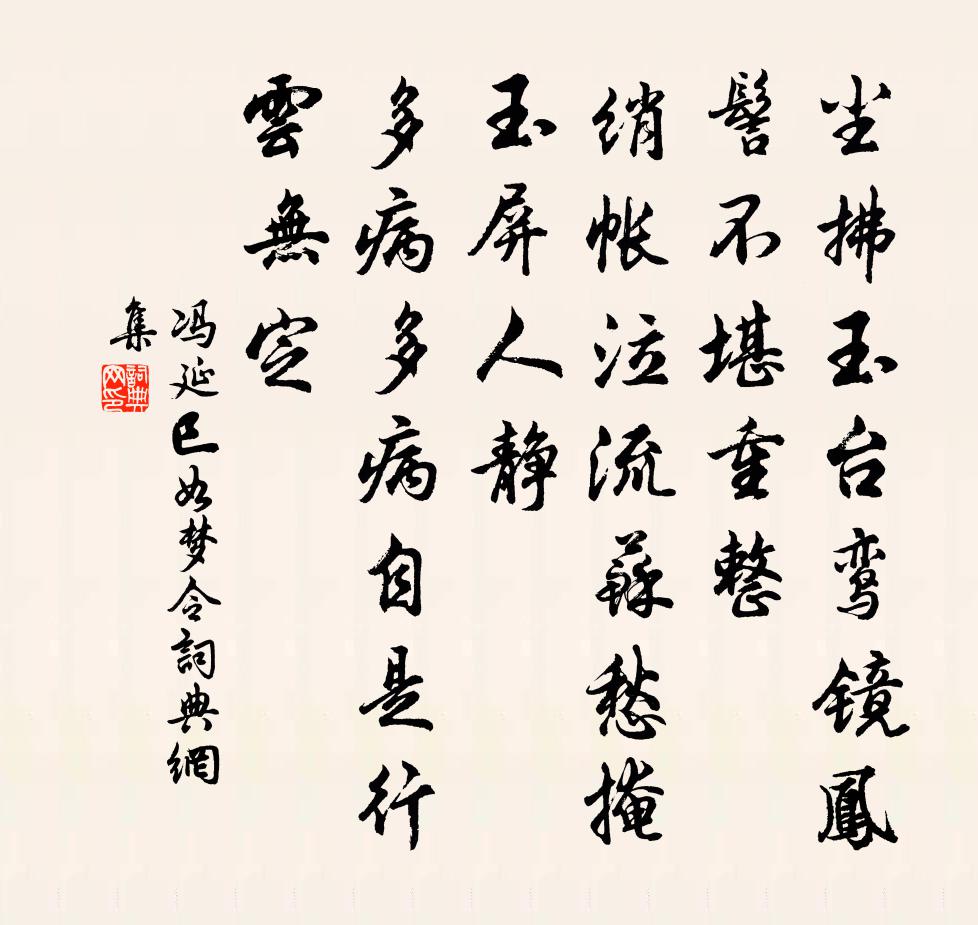 尘拂玉台鸾镜鳳
髻不堪重整
绡帐泣流蘇愁掩
玉屏人静
多病多病自是行
雲無定
冯延巳如梦令詞典網
集
詞典
网印